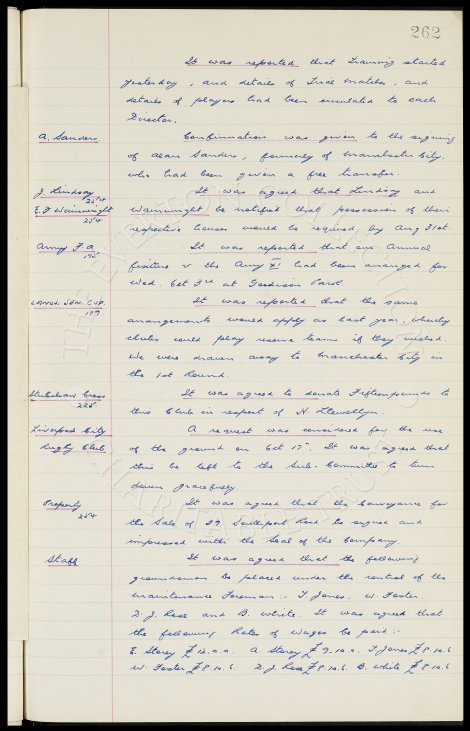 262
It was reported that Training started
yesterday, and details of Trial matches, and
details of players had been circulated to each
Director.
A. Sanders. Confirmation was given to the signing
of Alan Sanders, formerly of Manchester City,
who had been given a free transfer.
J. Lindsay 254 It was agreed that Lindsay and
E. J. Wainwright 254 Wainwright be notified that possession of their
respective houses would be required by Aug 31st.
Army F.A. It was reported that our Annual
fixture v the Army XI had been arranged for
Wed. Oct 3rd at Goodison Park
LANCS. SEN. CUP. 177 It was reported that the same
arrangements would apply as last year, whereby
clubs could play reserve teams if they wished.
We were drawn away to Manchester City in
the 1st Round.
Stubshaw Cross 225 It was agreed to donate Fifteen pounds to
this Club in respect of H. Llewellyn.
Liverpool City A request was considered for the use
Rugby Club of the ground on Oct 17th. It was agreed that
this be left to the Sub. Committee to turn
down gracefully.
Property 254 It was agreed that the Conveyance for
the Sale of 29 Southport Road be signed and
impressed with the Seal of the Company.
Staff It was agreed that the following
groundsmen be placed under the control of the
Maintenance Foreman:- T. Jones. W. Foster.
D. J. Rose and B. White. It was agreed that
the following Rates of Wages be paid:-
E. Storey £12.0.0. A. Storey £9.10.0. T. Jones £8.10.6
W. Foster £8.10.6 D. J. Rose £8.10.6. B. White £8.10.6